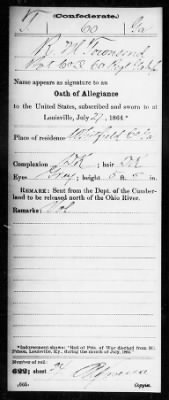 (Confederate.)
T 60 Ga
R. M. Townsend
Pvt Co D 60 Regt Ga
Name appears as signature to an
Oath of Allegiance
to the United States, subscribed and sworn to at
Louisville, July 21, 1864*
Place of residence Co Ga
Complexion DK; hair DK
Eyes Gray; height 5 ft. 5 in.
REMARK: Sent from the Dept. of the Cumber-
land to be released north of the Ohio River.
Remarks: Vol
*Indorsement shows: "Roll of Pris. of War discharged from M.
Prison, Louisville, Ky., during the month of July, 1864.
No. of
roll:
sheet
Copyist.